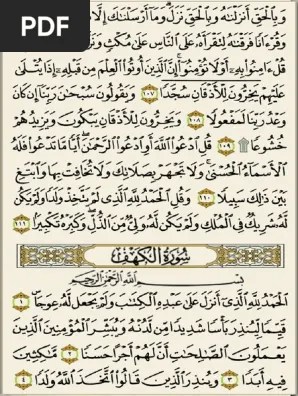 PDF
وَبِالْحَقِّ أَنزَلْنَاهُ وَبِالْحَقِّ نَزَلَ وَمَا أَرْسَلْنَاكَ إِلَّا
وَقُرْءَانًا فَرَقْنَاهُ لِتَقْرَأَهُ عَلَى النَّاسِ عَلَى مُكْثٍ
قُلْ ءَامِنُوا بِهِ أَوْ لَا تُؤْمِنُوا إِنَّ الَّذِينَ أُوتُوا الْعِلْمَ مِن قَبْلِهِ إِذَا يُتْلَى
عَلَيْهِمْ يَخِرُّونَ لِلْأَذْقَانِ سُجَّدًا ١٠٧ وَيَقُولُونَ سُبْحَانَ رَبِّنَا إِن كَانَ
وَعْدُ رَبِّنَا لَمَفْعُولًا ١٠٨ وَيَخِرُّونَ لِلْأَذْقَانِ يَبْكُونَ وَيَزِيدُهُمْ
خُشُوعًا ۩ ١٠٩ قُلِ ادْعُوا اللَّهَ أَوِ ادْعُوا الرَّحْمَٰنَ أَيًّا مَّا تَدْعُوا فَلَهُ
الْأَسْمَاءُ الْحُسْنَى وَلَا تَجْهَرْ بِصَلَاتِكَ وَلَا تُخَافِتْ بِهَا وَابْتَغِ
بَيْنَ ذَٰلِكَ سَبِيلًا ١١٠ وَقُلِ الْحَمْدُ لِلَّهِ الَّذِي لَمْ يَتَّخِذْ وَلَدًا وَلَمْ يَكُن
لَّهُ شَرِيكٌ فِي الْمُلْكِ وَلَمْ يَكُن لَّهُ وَلِيٌّ مِّنَ الذُّلِّ وَكَبِّرْهُ تَكْبِيرًا ١١١
سُورَةُ الْكَهْفِ
بِسْمِ اللَّهِ الرَّحْمَٰنِ الرَّحِيمِ
الْحَمْدُ لِلَّهِ الَّذِي أَنزَلَ عَلَى عَبْدِهِ الْكِتَابَ وَلَمْ يَجْعَل لَّهُ عِوَجًا ١
قَيِّمًا لِّيُنذِرَ بَأْسًا شَدِيدًا مِّن لَّدُنْهُ وَيُبَشِّرَ الْمُؤْمِنِينَ الَّذِينَ
يَعْمَلُونَ الصَّالِحَاتِ أَنَّ لَهُمْ أَجْرًا حَسَنًا ٢ مَّاكِثِينَ
فِيهِ أَبَدًا ٣ وَيُنذِرَ الَّذِينَ قَالُوا اتَّخَذَ اللَّهُ وَلَدًا ٤